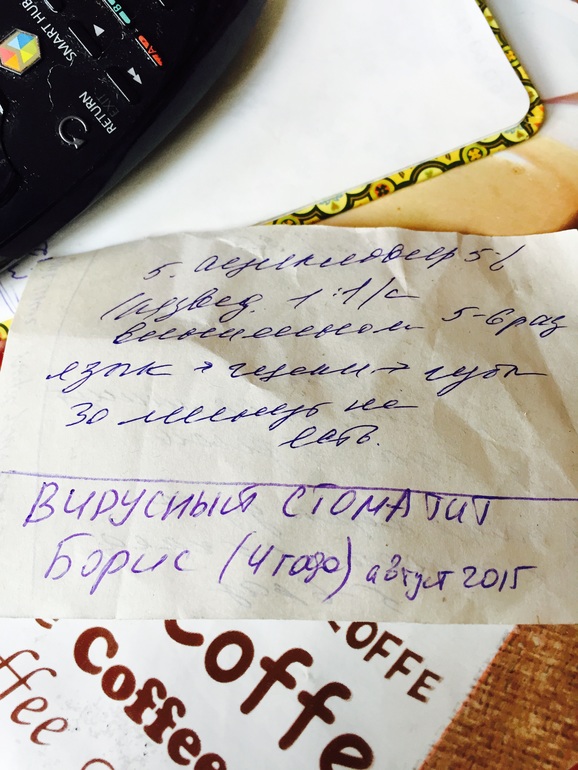 SMART HUB
B
A
RETURN
EXIT
5. ацикловир 5%
развед. 1:1 с
винилином 5-6 раз
язык → щеки → губы
30 минут не
есть.
ВИРУСНЫЙ СТОМАТИТ
Борис (4 года) август 2015
COFFEE
Coffee
Coffee
ffee